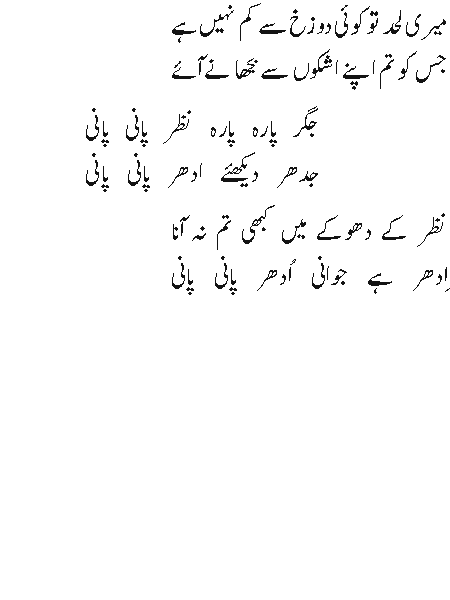 میری لحد تو کوئی دوزخ سے کم نہیں ہے
جس کو تم اپنے اشکوں سے بجھانے آئے
جگر پارہ پارہ نظر پانی پانی
جدھر دیکھئے ادھر پانی پانی
نظر کے دھوکے میں کبھی تم نہ آنا
اِدھر ہے جوانی اُدھر پانی پانی